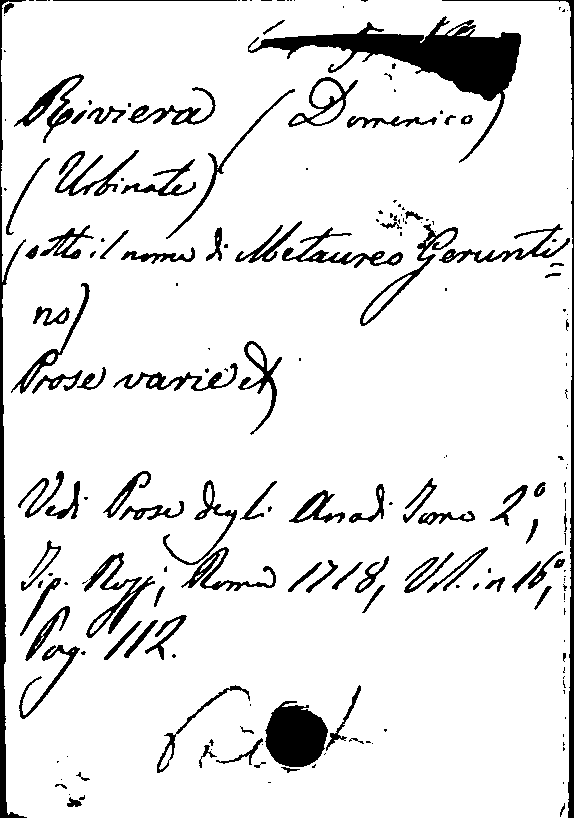 Riviera (Domenico)
(Urbinate)
(sotto il nome di Metaureo Gerunti=
no)
Prose varie
Vedi Prose degli Arcadi Tomo 2º,
Tip. Rossi, Roma 1718, Vol. in 16º,
Pag. 112.